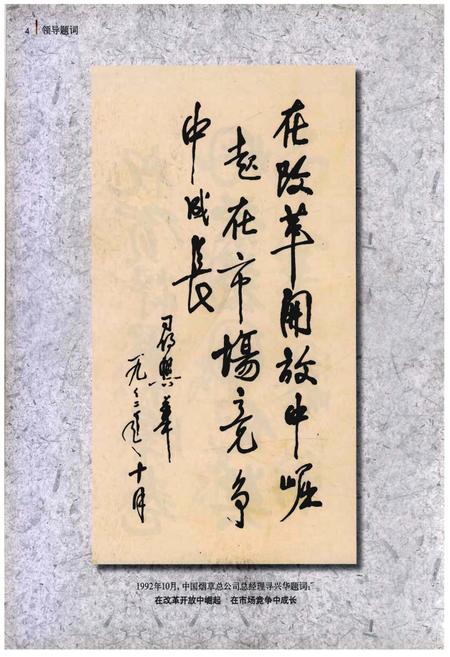 4 领导题词
在改革開放中崛
起在市場竞争
中成長
尋興華
一九九二年十月
1992年10月,中国烟草总公司总经理寻兴华题词:
在改革开放中崛起 在市场竞争中成长